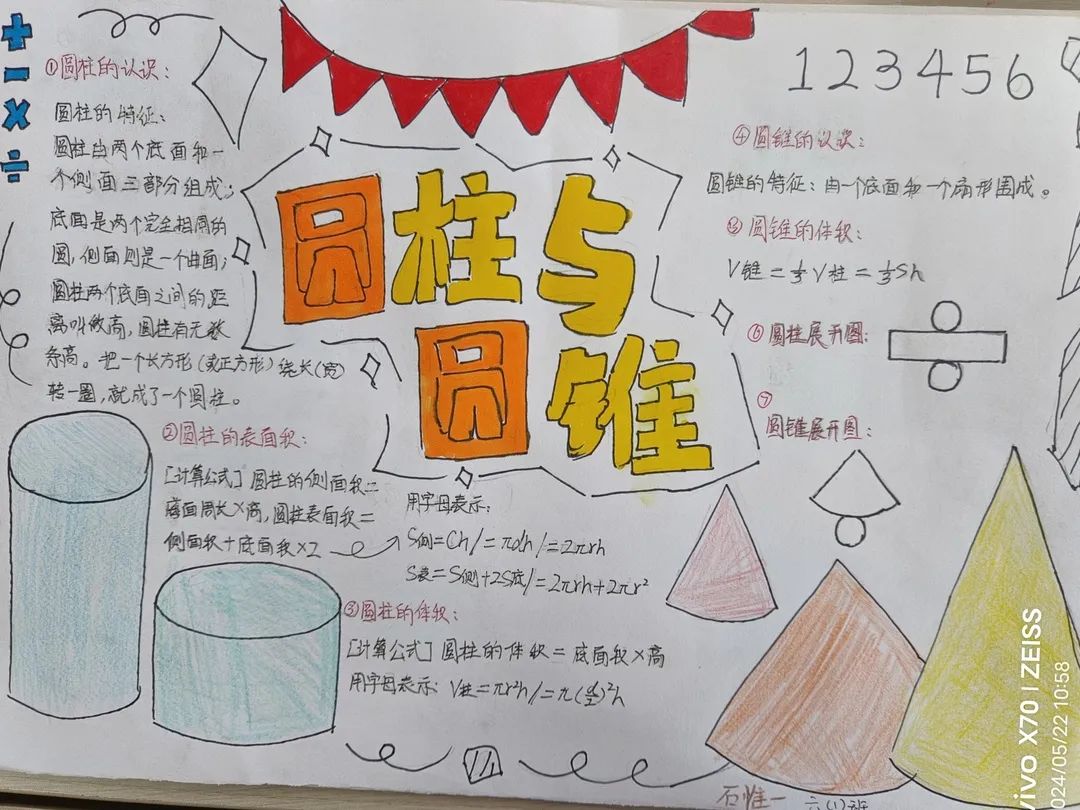 +
-
×
÷
①圆柱的认识：
圆柱的特征：
圆柱由两个底面和一
个侧面三部分组成；
底面是两个完全相同的
圆，侧面则是一个曲面；
圆柱两个底面之间的距
离叫做高，圆柱有无数
条高。把一个长方形（或正方形）绕长（宽）
转一圈，就成了一个圆柱。
圆柱与
圆锥
②圆柱的表面积：
[计算公式] 圆柱的侧面积=
底面周长×高，圆柱表面积=
侧面积+底面积×2
用字母表示：
S侧=Ch/=πdh/=2πrh
S表=S侧+2S底/=2πrh+2πr²
③圆柱的体积：
[计算公式] 圆柱的体积=底面积×高
用字母表示：V柱=πr²h/=π(d/2)²h
123456
④圆锥的认识：
圆锥的特征：由一个底面和一个扇形围成。
圆锥的体积：
V锥=⅓V柱=⅓Sh
⑥圆柱展开图：
⑦
圆锥展开图：
石惟一 六(1)班
vivo X70 | ZEISS
2024/05/22 10:58